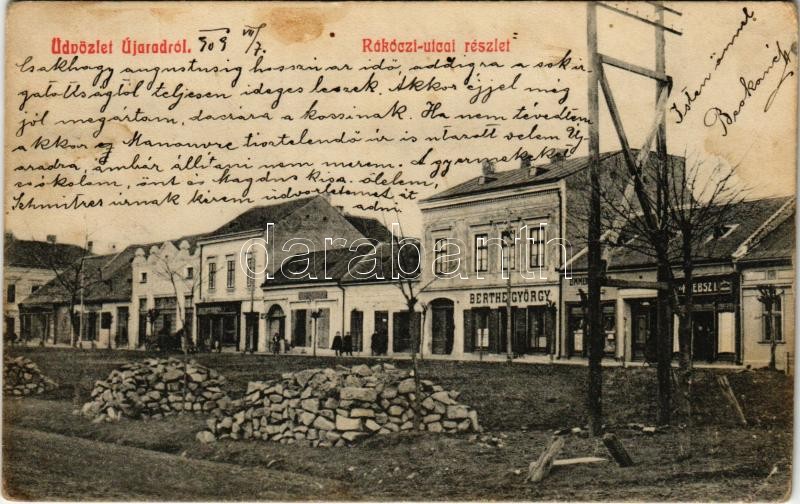 Üdvözlet Újaradról. 909 VII/7.
Rákóczi-utcai részlet
Csakhogy augustusig hosszú ár idő, addigra a sok ir
gatottságtól teljesen ideges leszek. Akkor éjjel még
jól megártam, daczára a kossinak. Ha nem tévedtem
akkor ez tisztelendő úr is utazott velem Új
aradra, ámbár állítani nem merem. A gyermekeket
csókolom, önt és Magdus kisa. ölelem,
Schmitzes úrnak kérem üdvözletemet át
adni.
Isten önnel
BERTHE GYÖRGY
darabanth.com